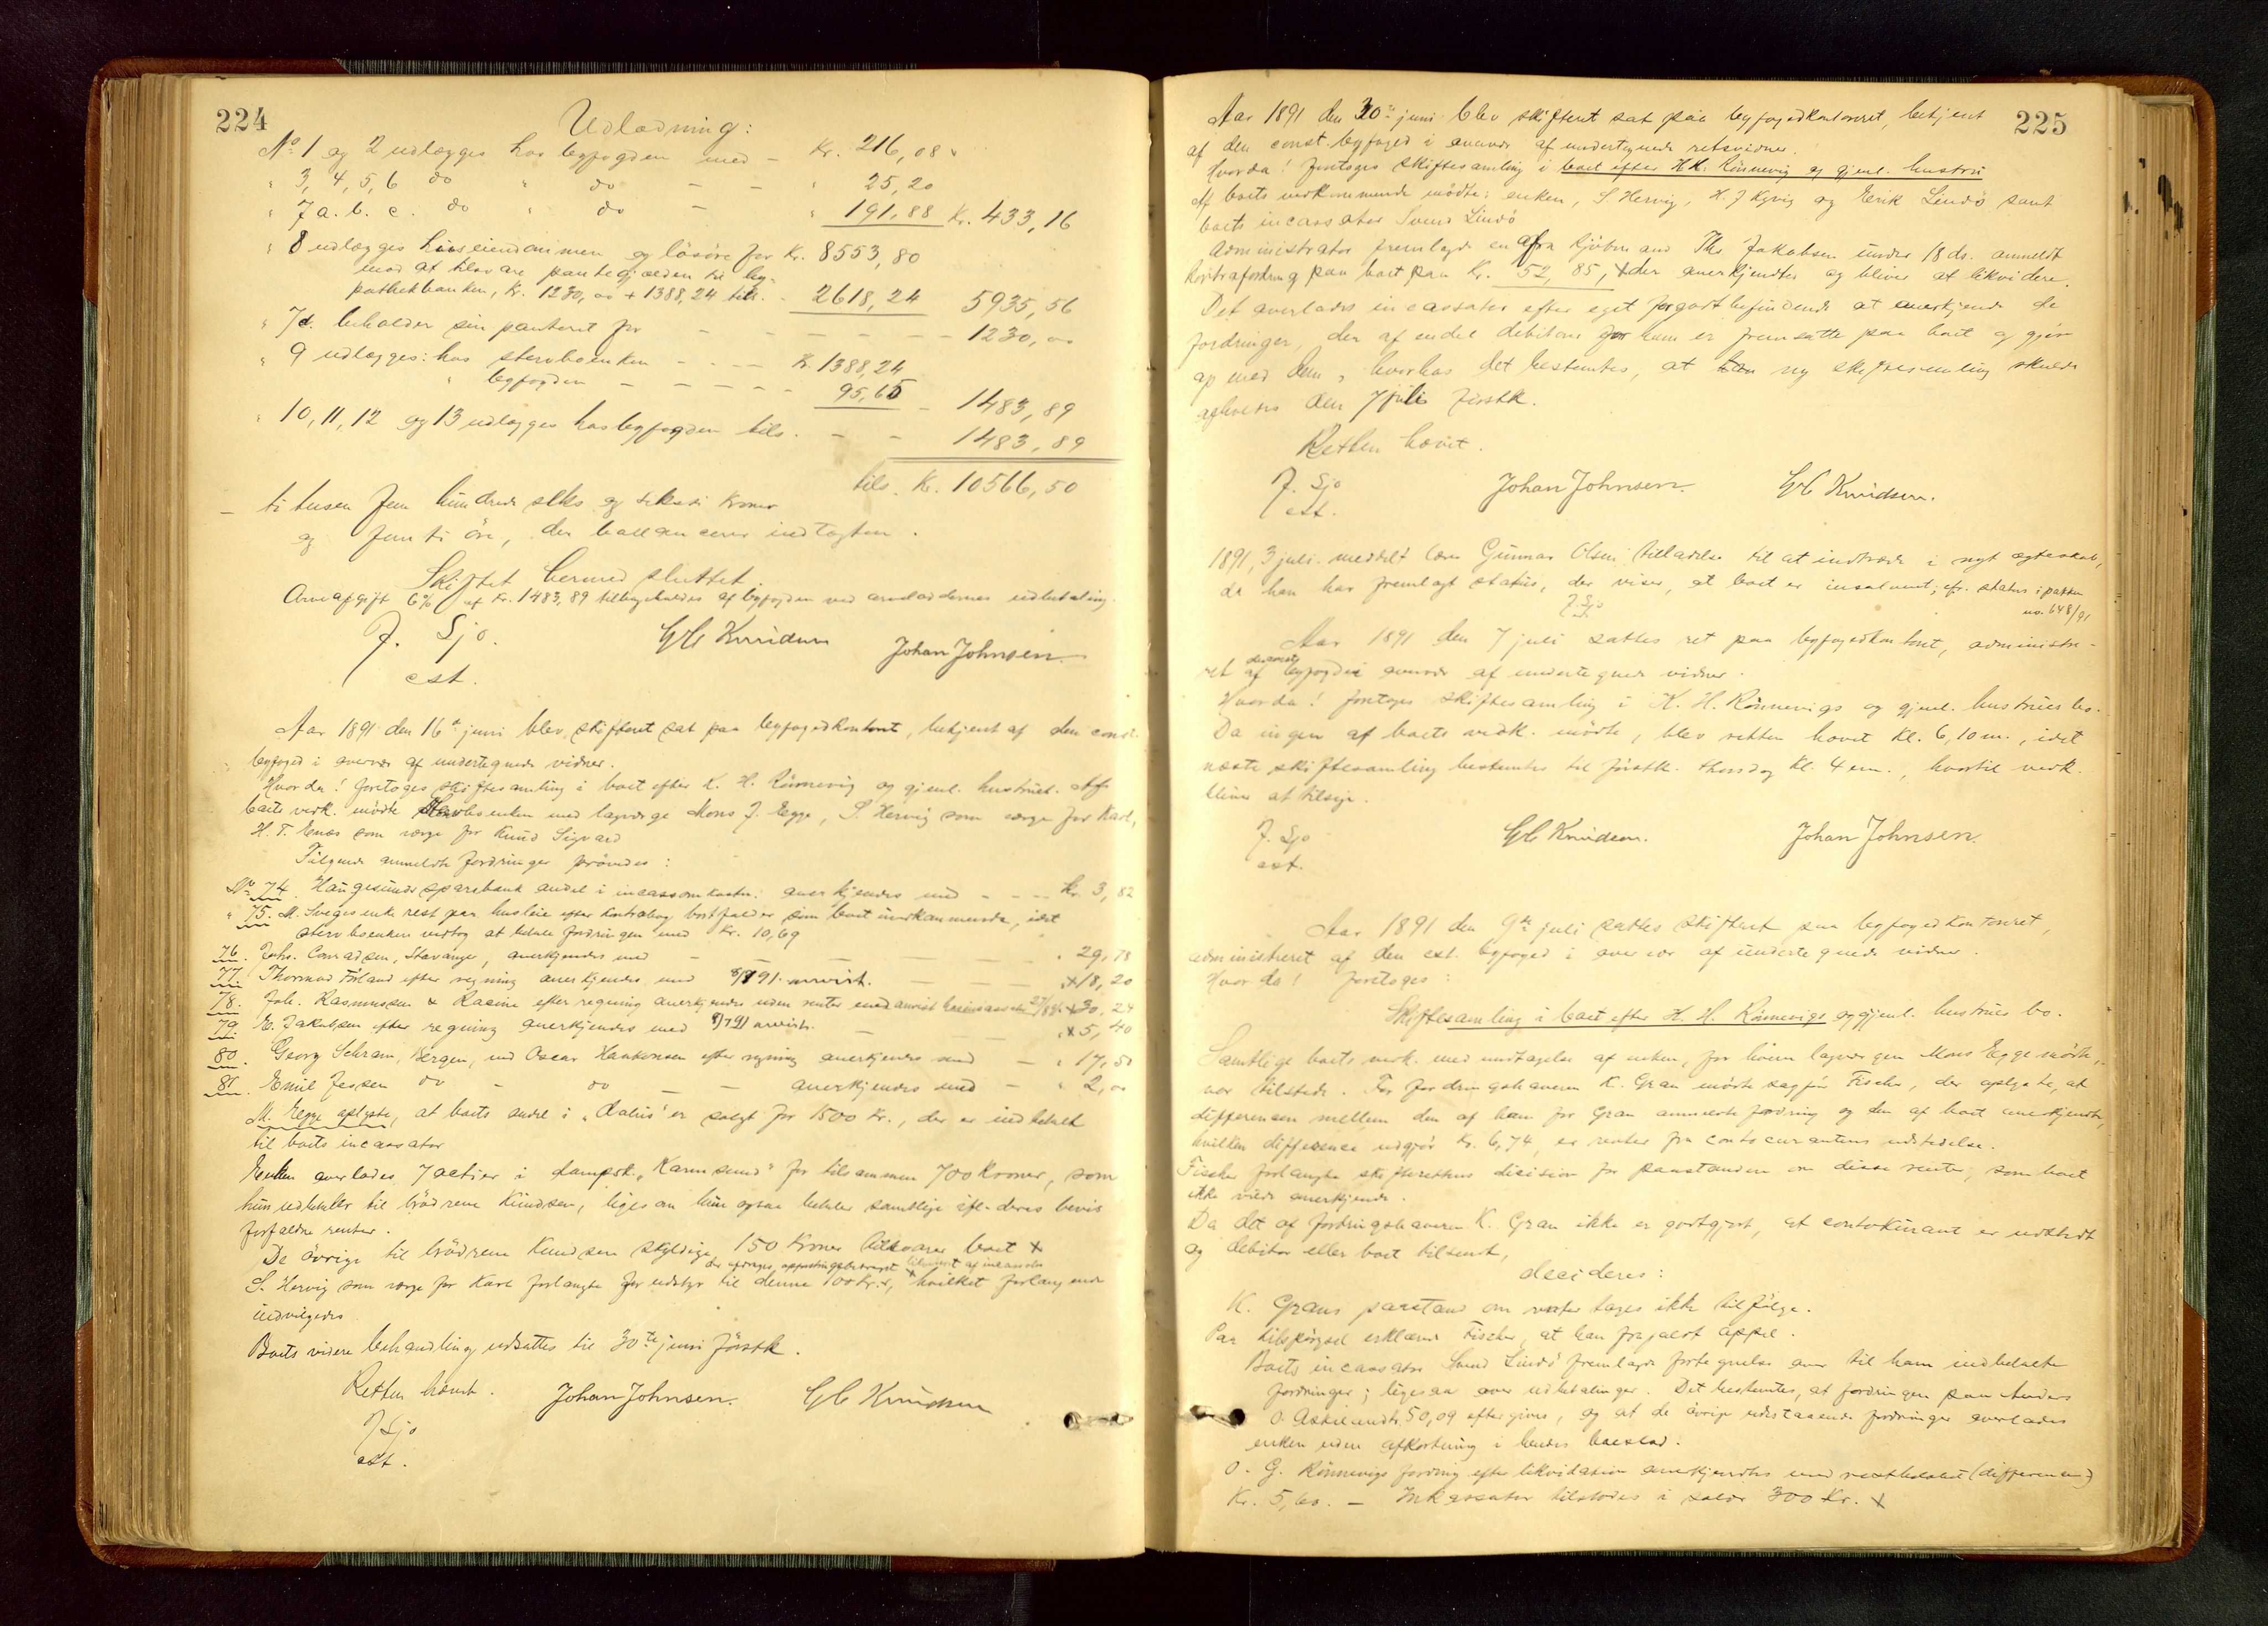 224
Udlodning:
No 1 og 2 udlægges hos byfogden med - Kr. 216,08
" 3, 4, 5, 6 do " do - - " 25,20
" 7 a. b. c. do " do - " 191,88 Kr. 433,16
" 8 udlægges huseiendommen og løsøre for Kr. 8553,80
mod at tilsvare pantegjælden til hy-
pothekbanken, Kr. 1230,00 + 1388,24 tils. - 2618,24 5935,56
" 7d. beholder sin panteret for - - - - - - 1230,00
" 9 udlægges: hos stervboenken - - - Kr. 1388,24
" byfogden - - - - - 95,65 - 1483,89
" 10, 11, 12 og 13 udlægges hos byfogden tils. - - 1483,89
tils. Kr. 10566,50
- ti tusen fem hundrede seks og seksti kroner
og femti øre, der ballancerer indtægten.
Skiftet hermed sluttet.
Arveafgift 6% af Kr. 1483,89 tilbageholdes af byfogden ved arvelodernes udbetaling.
J. Sjo. GC Knudsen Johan Johnsen
cst.
Aar 1891 den 16de juni blev skifteret sat paa byfogedkontoret, betjent af den const.
byfoged i overvær af undertegnede vidner.
Hvorda! foretoges skiftesamling i boet efter K. H. Rönnevig og gjenl. hustru. Af
boets vedk. mødte stervboenken med lagværge Mons J. Egge, S. Hervig som værge for Karl,
H. T. Enæs som værge for Knud Sigvard
Følgende anmeldte fordringer prøvedes:
No 74. Haugesunds sparebank andel i incassomkostn. anerkjendes med - - - Kr. 3,82
" 75. M. Sveges enke rest paa husleie efter kontrabog bortfalder som boet uvedkommende, idet
stervboenken vedtog at betale fordringen med Kr. 10,69
76. Johs. Conradsen, Stavanger, anerkjendes med - - - - " 29,78
77. Thormod Førland efter regning anerkjendes med 8/7 91. anvist. - - - + 18,20
78. Joh. Rasmussen & Racine efter regning anerkjendes uden renter + 30,24
79. E. Jakobsen efter regning anerkjendes med 8/7 91 anvist. - + 5,40
80. Georg Schram, Bergen, ved Oscar Haakonsen efter regning anerkjendes med - " 17,50
81. Emil Jessen do - do - - anerkjendes med - " 2,00
M. Egge oplyste, at boets andel i "Valius" er solgt for 1500 Kr., der er indbetalt
til boets incassator
Enken overlodes 7 actier i dampsk. "Karmsund" for tilsammen 700 kroner, som
hun udbetaler til brødrene Knudsen, ligesom hun ogsaa betaler samtlige ifl. deres bevis
forfaldne renter.
De övrige til brødrene Knudsen skyldige 150 kroner tilsvarer boet +
S. Hervig som værge for Karl forlangte for udstyr til denne 100 Kr. +, hvilket forlangende
indvilgedes
Boets videre behandling udsattes til 30te juni førstk.
Retten hævet. Johan Johnsen. GC Knudsen
J Sjo
cst.
225
Aar 1891 den 30te juni blev skifteret sat paa byfogedkontoret, betjent
af den const. byfoged i overvær af undertegnede retsvidner.
Hvorda! foretoges skiftesamling i boet efter H H. Rönnevig og gjenl. hustru
Af boets vedkommende mødte: enken, S. Hervig, H. J Kyvig og Erik Lindø samt
boets incassator Svend Lindö
Administrator fremlagde en afra Kjøbmand Ths. Jakobsen under 18 ds. anmeldt
Kontrafordring paa boet paa Kr. 52,85, + der anerkjendtes og bliver at likvidere.
Det overlodes incassator efter eget forgodtbefindende at anerkjende de
fordringer, der af endel debitorer for ham er fremsatte paa boet og gjør
op med dem, hvorhos det bestemtes, at en ny skiftesamling skulde
afholdes den 7 juli førstk.
Retten hævet.
J. Sjo Johan Johnsen. GC Knudsen.
cst.
1891, 3 juli. meddelt Gunnar Olsen tilladelse til at indtræde i nyt ægteskab,
da han har fremlagt status, der viser, at boet er insolvent; cfr. status i pakken
no. 648/91
J. Sjo
Aar 1891 den 7 juli sattes ret paa byfogedkontoret, administre-
ret af den const. byfoged i overvær af undertegnede vidner.
Hvorda! foretoges skiftesamling i K. H. Rönnevigs og gjenl. hustrues bo.
Da ingen af boets vedk. mødte, blev retten hævet kl. 6,10 m., idet
næste skiftesamling bestemtes til førstk. thorsdag kl. 4 em., hvortil vedk.
bliver at tilsige.
J. Sjo GC Knudsen. Johan Johnsen.
cst.
Aar 1891 den 9de juli sattes skifteret paa byfogedkontoret,
administreret af den cst. byfoged i overvær af undertegnede vidner.
Hvorda! foretoges:
Skiftesamling i boet efter H. H. Rönnevigs og gjenl. hustrues bo.
Samtlige boets vedk. med undtagelse af enken, for hvem lagværgen Mons Egge mødte,
var tilstede. For fordringshaveren K. Gran mødte sagfør. Fischer, der oplyste, at
differensen mellem den af ham for Gran anmeldte fordring og den af boet anerkjendte,
hvilken difference udgjør Kr. 6,74, er renter fra contocurantens udstedelse.
Fischer forlangte skifterettens dicision for paastanden om disse renter, som boet
ikke vilde anerkjende.
Da det af fordringshaveren K. Gran ikke er godtgjort, at contokurant er udstedt
og debitor eller boet tilsendt,
decideres:
K. Grans paastand om renter tages ikke tilfølge.
Paa tilspørgsel erklærede Fischer, at han forfaldt appel.
Boets incassator Svend Lindö fremlagde fortegnelse over til ham indbetalte
fordringer; ligesaa over udbetalinger. Det bestemtes, at fordringen paa Anders
O. Askeland Kr. 50,09 eftergives, og at de øvrige udestaaende fordringer overlades
enken uden afkortning i hendes boeslod.
O. G. Rönnevigs fordring efter likvidation anerkjendtes med restbeløbet (differensen)
Kr. 5,60. - Inkassator tilstodes i salær 300 Kr. +